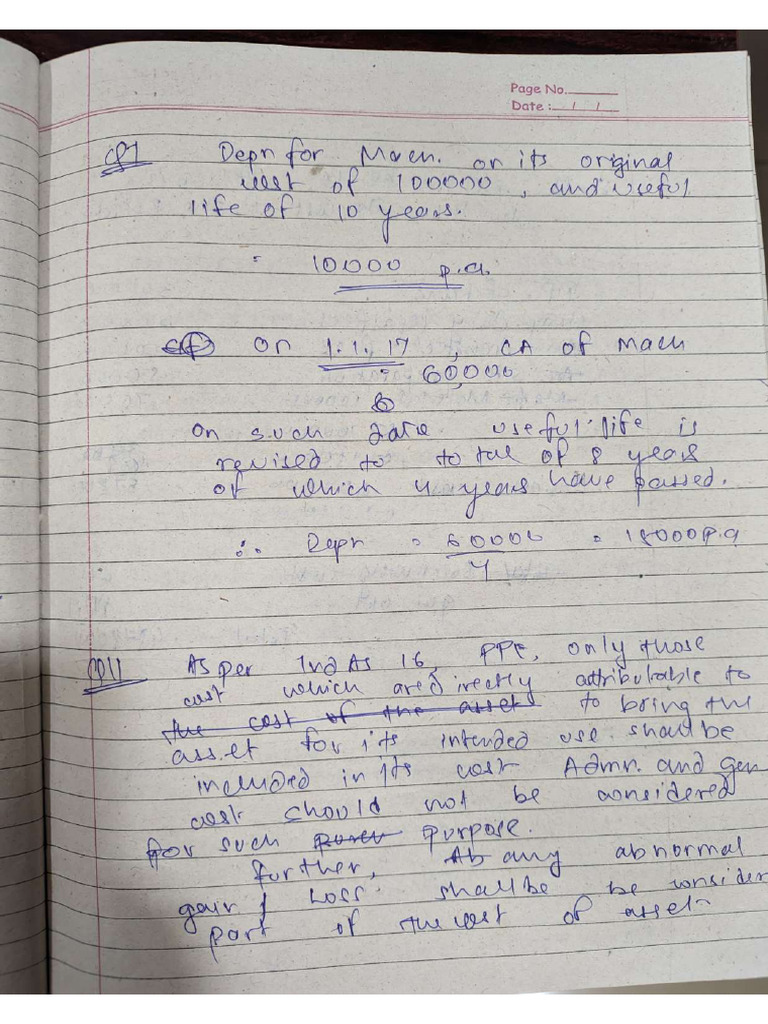 Page No.
Date : / /
CP1 Depn for Mach. on its original
cost of 100000, and useful
life of 10 years.
= 10000 p.a.
On 1.1.17, CA of Mach
= 60,000
On such date useful life is
revised to total of 8 years
of which 4 years have passed.
∴ Depn = 60000 = 15000 p.a
4
CP11 As per Ind As 16, PPE, only those
cost which are directly attributable to
the cost of the asset to bring the
asset for its intended use shall be
included in its cost Admn. and gen
cost should not be considered
for such purpose.
further, Ab any abnormal
gain / Loss shall be be consider
part of the cost of asset